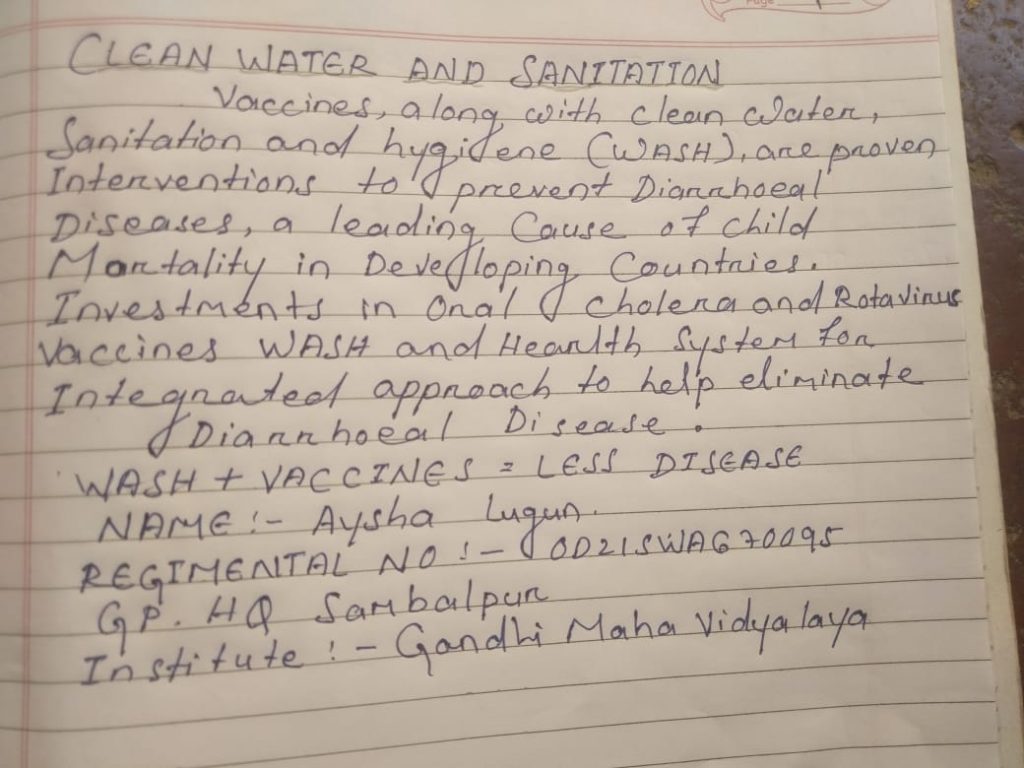 Page
CLEAN WATER AND SANITATION
Vaccines, along with clean water,
Sanitation and hygiene (WASH), are proven
Interventions to prevent Diarrhoeal
Diseases, a leading Cause of child
Mortality in Developing Countries.
Investments in Oral cholera and Rotavirus
Vaccines WASH and Hearlth System for
Integrated approach to help eliminate
Diarrhoeal Disease.
WASH + VACCINES = LESS DISEASE
NAME :- Aysha Lugun.
REGIMENTAL NO :- OD21SWAG70095
GP. HQ Sambalpur
Institute :- Gandhi Maha Vidyalaya